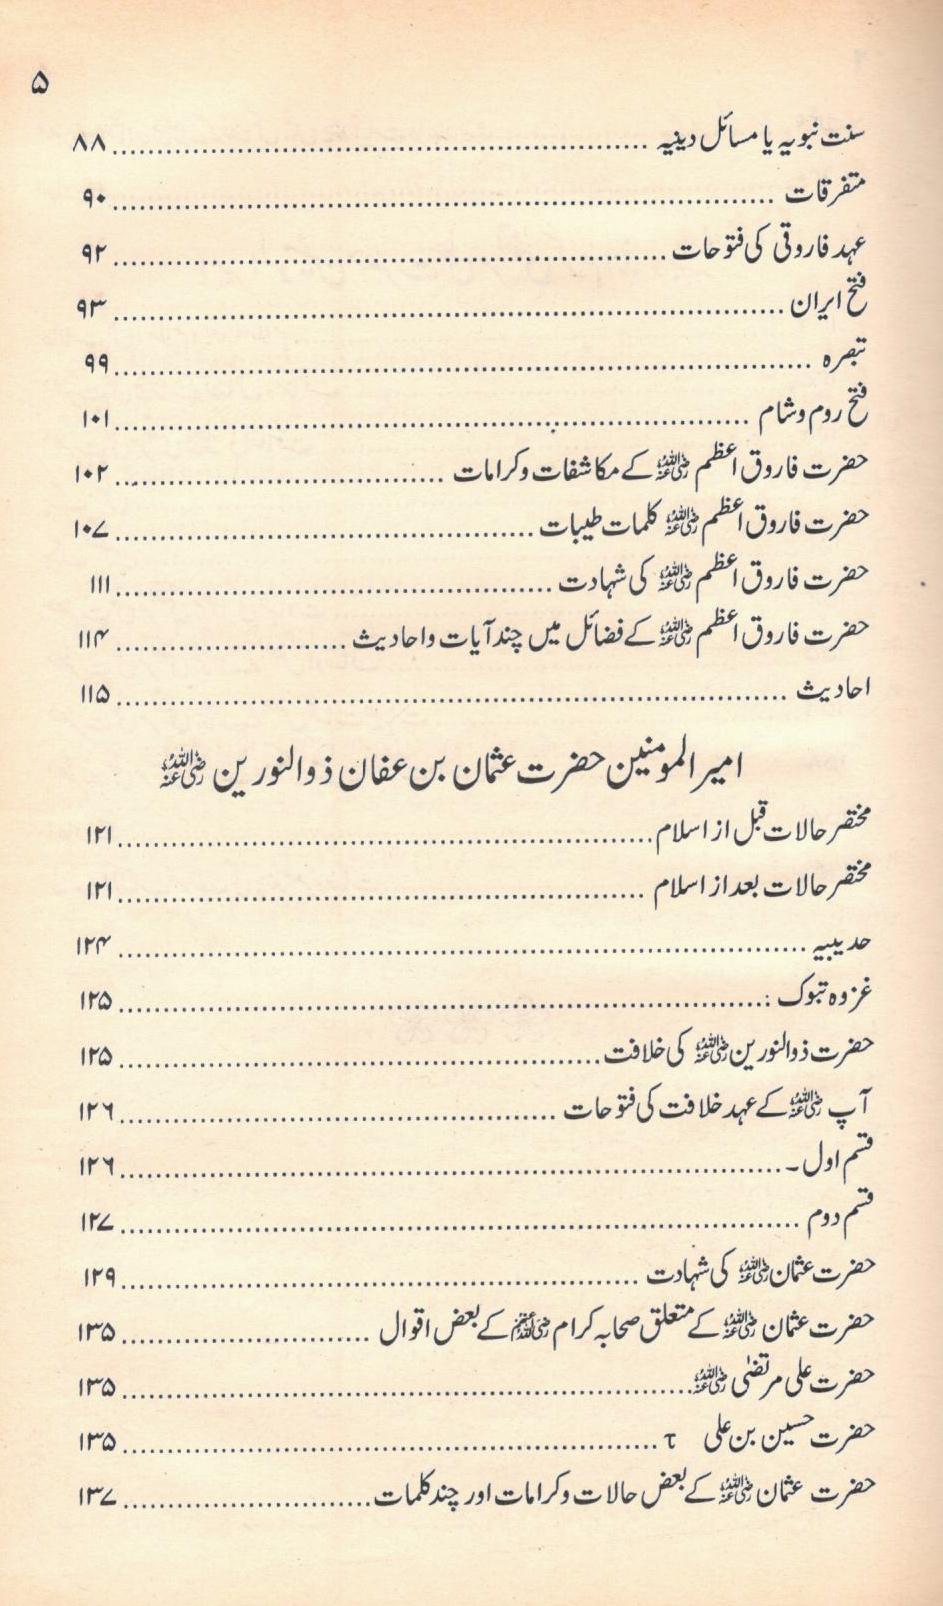 ۵
سنت نبویہ یا مسائل دینیہ ........ ۸۸
متفرقات ........ ۹۰
عہد فاروقی کی فتوحات ........ ۹۲
فتح ایران ........ ۹۳
تبصرہ ........ ۹۹
فتح روم و شام ........ ۱۰۱
حضرت فاروق اعظم رضی اللہ عنہ کے مکاشفات و کرامات ........ ۱۰۲
حضرت فاروق اعظم رضی اللہ عنہ کلمات طیبات ........ ۱۰۷
حضرت فاروق اعظم رضی اللہ عنہ کی شہادت ........ ۱۱۱
حضرت فاروق اعظم رضی اللہ عنہ کے فضائل میں چند آیات و احادیث ........ ۱۱۴
احادیث ........ ۱۱۵
امیر المومنین حضرت عثمان بن عفان ذوالنورین رضی اللہ عنہ
مختصر حالات قبل از اسلام ........ ۱۲۱
مختصر حالات بعد از اسلام ........ ۱۲۱
حدیبیہ ........ ۱۲۴
غزوہ تبوک : ........ ۱۲۵
حضرت ذوالنورین رضی اللہ عنہ کی خلافت ........ ۱۲۵
آپ رضی اللہ عنہ کے عہد خلافت کی فتوحات ........ ۱۲۶
قسم اول ۔ ........ ۱۲۶
قسم دوم ........ ۱۲۷
حضرت عثمان رضی اللہ عنہ کی شہادت ........ ۱۲۹
حضرت عثمان رضی اللہ عنہ کے متعلق صحابہ کرام رضی اللہ عنہم کے بعض اقوال ........ ۱۳۵
حضرت علی مرتضیٰ رضی اللہ عنہ ........ ۱۳۵
حضرت حسین بن علی τ ........ ۱۳۵
حضرت عثمان رضی اللہ عنہ کے بعض حالات و کرامات اور چند کلمات ........ ۱۳۷